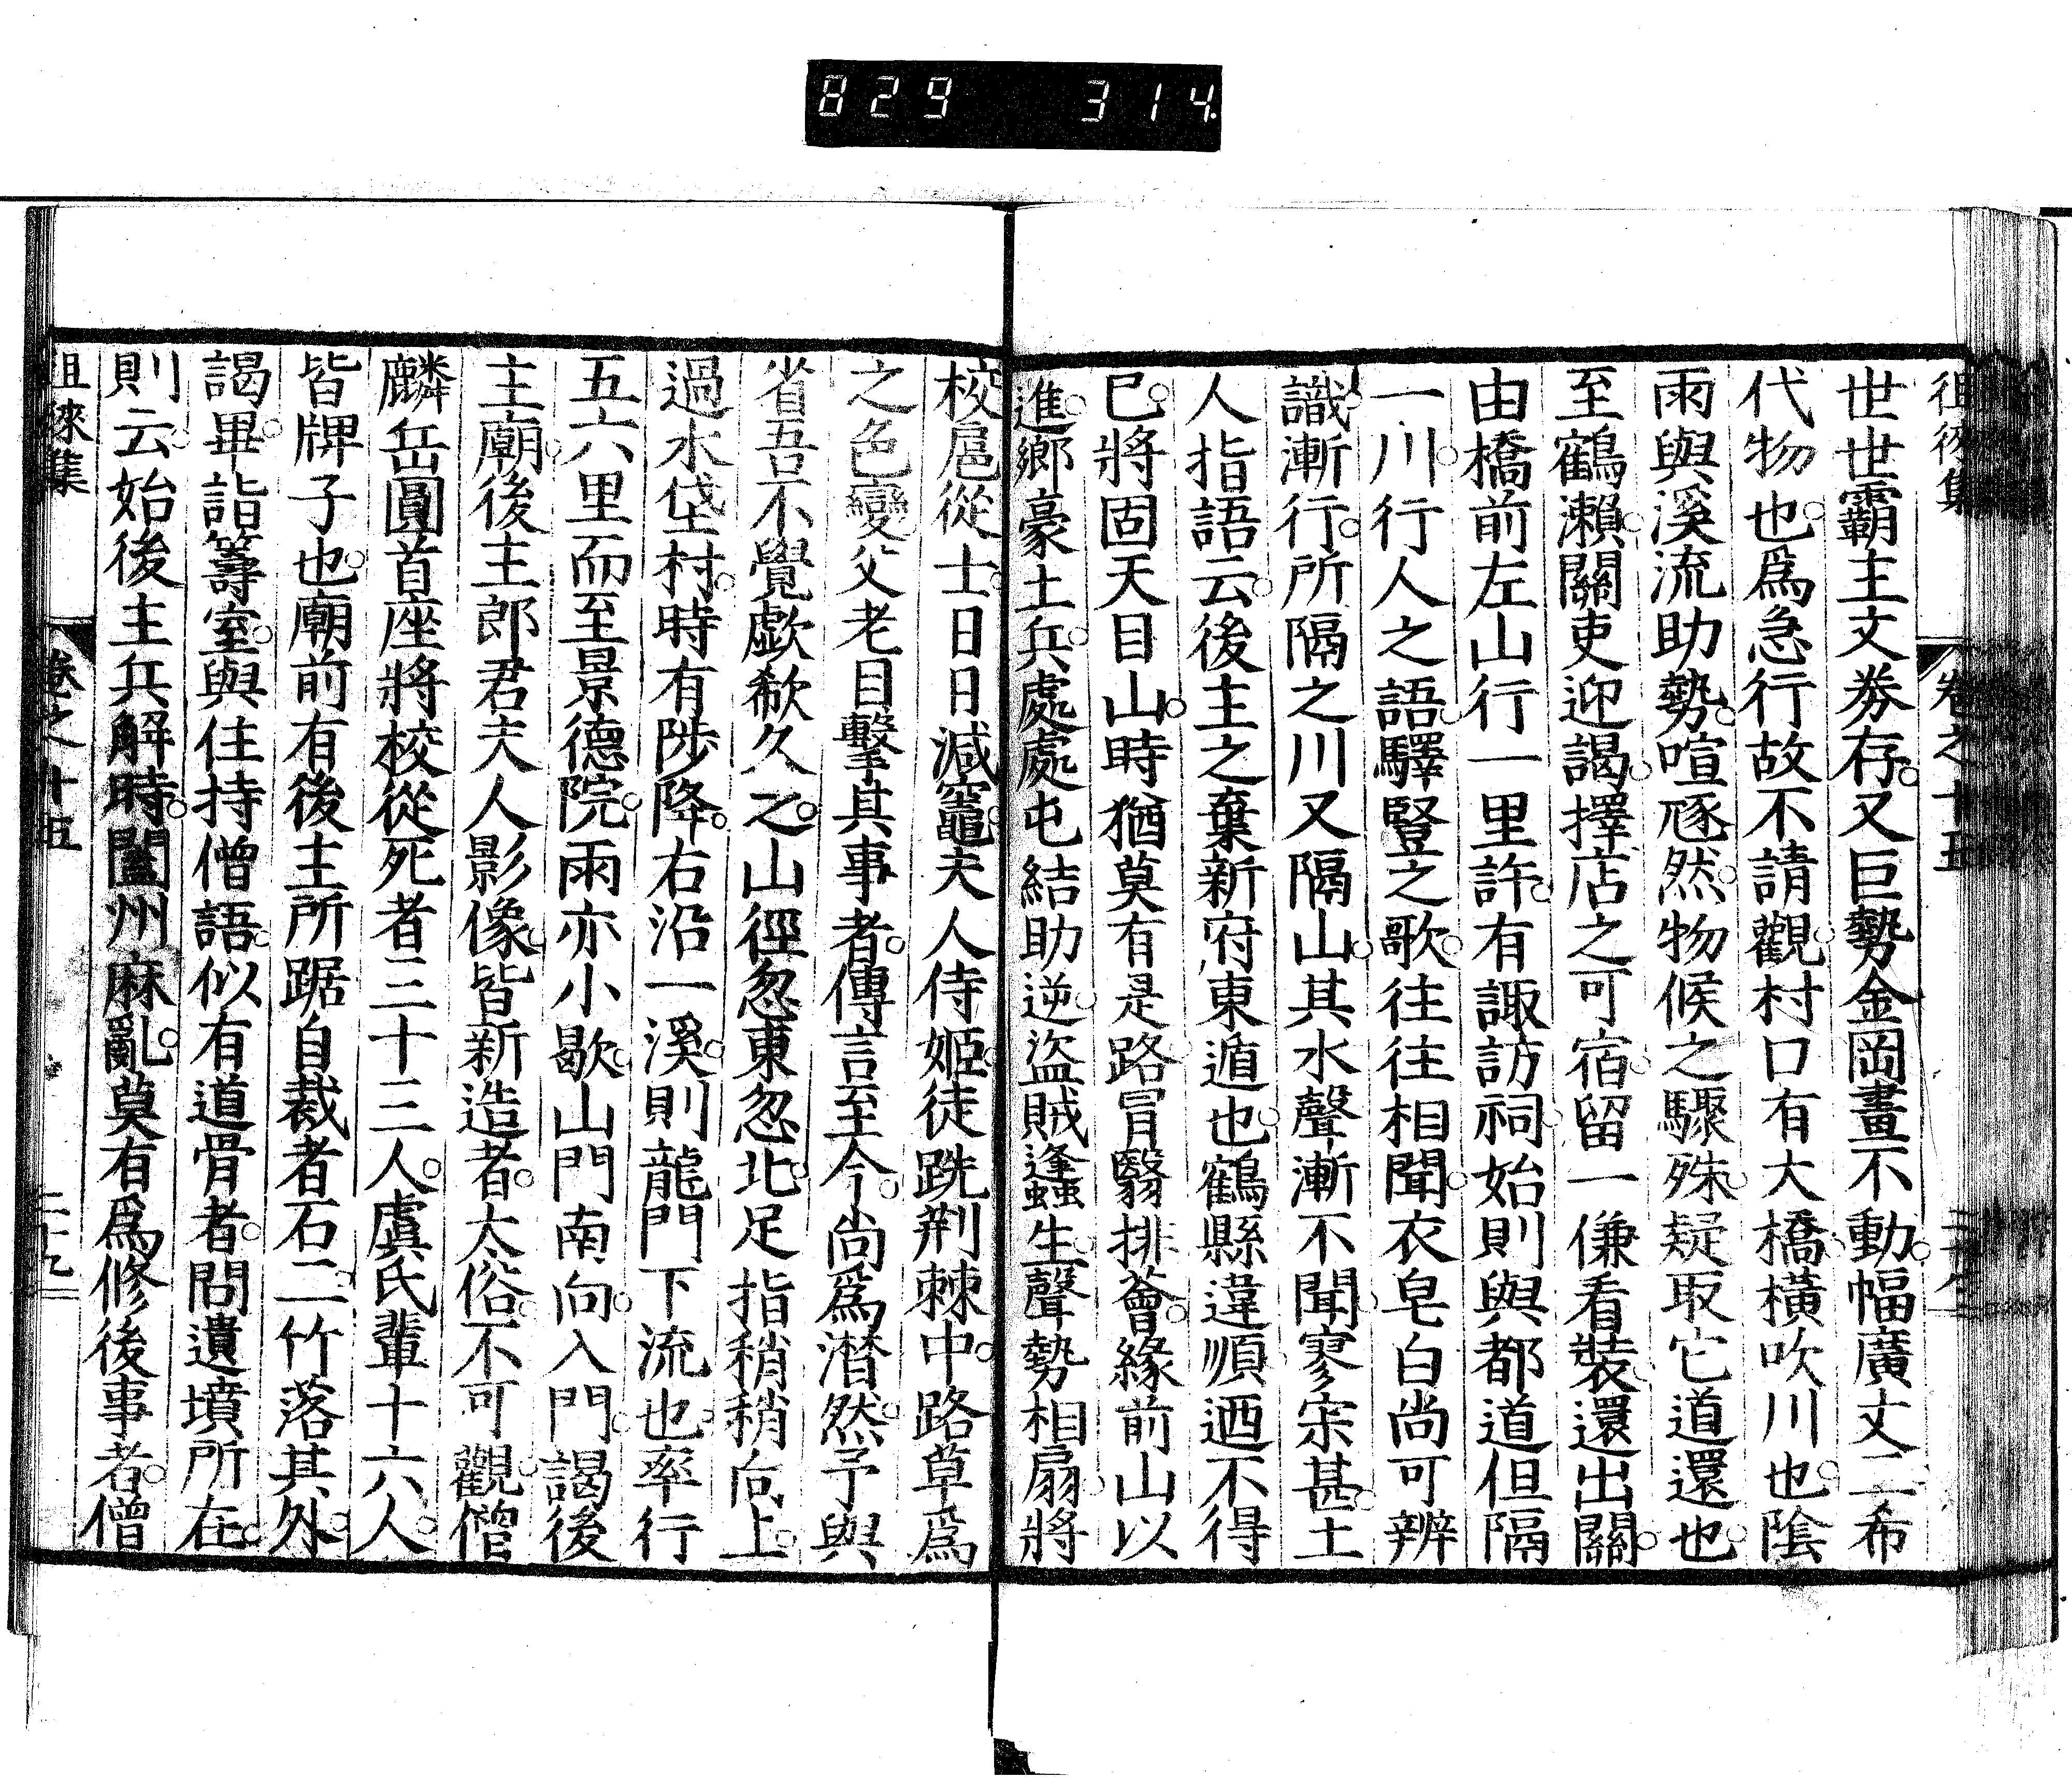 829 314
徂徠集
卷之十五
世世霸主文劵存又巨勢金岡畫不動幅廣丈二希
代物也爲急行故不請觀村口有大橋橫吹川也陰
雨與溪流助勢喧豗然物候之驟殊疑取它道還也
至鶴瀨關吏迎謁擇店之可宿留一傔看裝還出關
由橋前左山行一里許有諏訪祠始則與都道但隔
一川行人之語驛豎之歌往往相聞衣皂白尚可辨
識漸行所隔之川又隔山其水聲漸不聞寥宗甚土
人指語云後主之棄新府東遁也鶴縣違順迺不得
已將固天目山時猶莫有是路冒翳排薈緣前山以
進鄉豪土兵處處屯結助逆盜賊蠭生聲勢相扇將
校扈從士日日減竈夫人侍姬徒跣荆棘中路草爲
之色變父老目擊其事者傳言至今尚爲潸然予與
省吾不覺歔欷久之山徑忽東忽北足指稍稍向上
過水垈村時有陟降右沿一溪則龍門下流也率行
五六里而至景德院雨亦小歇山門南向入門謁後
主廟後主郎君夫人影像皆新造者太俗不可觀僧
麟岳圓首座將校從死者三十三人虞氏輩十六人
皆牌子也廟前有後主所踞自裁者石二竹落其外
謁畢詣籌室與住持僧語似有道骨者問遺墳所在
則云始後主兵解時闔州麻亂莫有爲修後事者僧
徂徠集
卷之十五
二十九